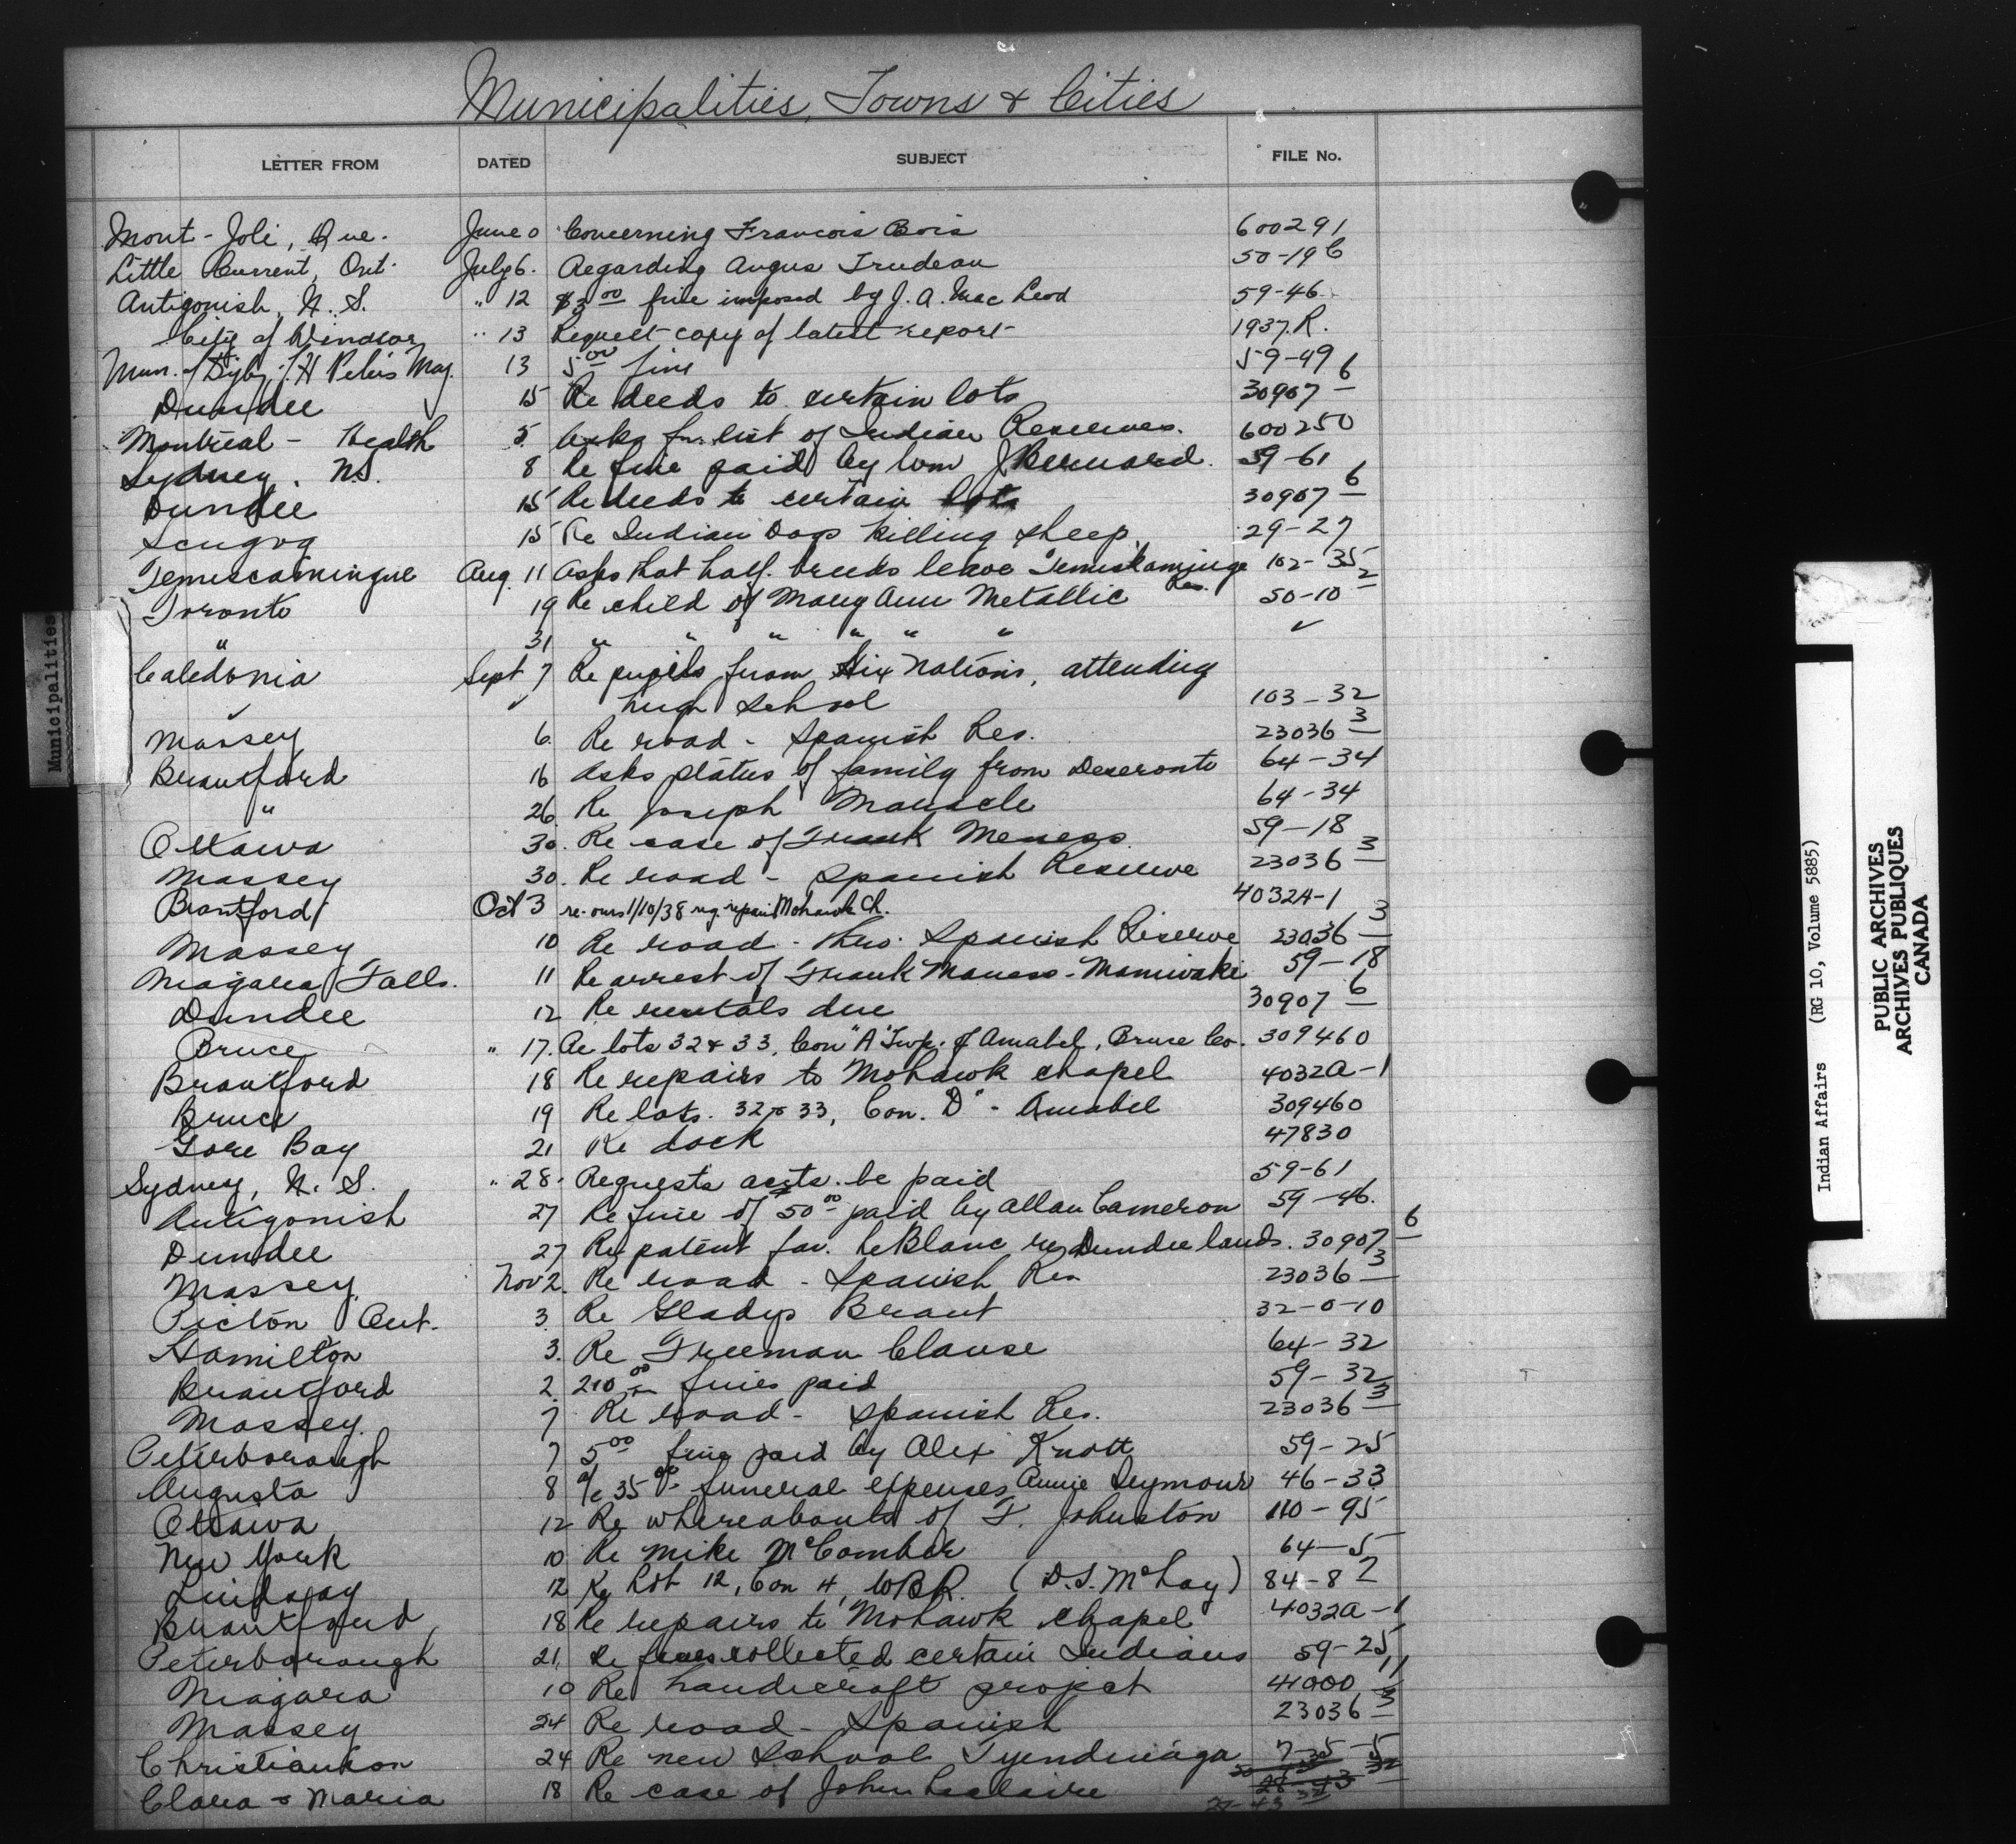 Municipalities, Towns & Cities
LETTER FROM DATED SUBJECT FILE No.
Mont-Joli, Que. June Concerning Francois Bois 600291
Little Current, Ont. July 6. Regarding Angus Trudeau 50-19
Antigonish, N. S. " 12 $3 00 fine imposed by J. A. MacLeod 59-46
City of Windsor " 13 Request copy of latest report 1937.R.
Mun. of Digby, H Peters May. 13 5 00 fine 59-49
Dundee 15 Re deeds to certain lots 30907 6
Montreal - Health 5 Asks for list of Indian Reserves. 600250
Sydney. N.S. 8 Re fine paid by Wm J Bernard. 59-61
Dundee 15 Re deeds to certain lots 30907 6
Scugog 15 Re Indian Dogs killing sheep. 29-27
Temiscamingue Aug. 11 Asks that half-breeds leave Temiskaminge Res. 102-35
Toronto 19 Re child of Mary Ann Metallic 50-10 2
" 31 " " " " " " ✓
Caledonia Sept 7 Re pupils from Six Nations, attending
✓ ✓ high School 103-32
Massey 6. Re road - Spanish Res. 23036 3
Brantford 16 Asks status of family from Deseronto 64-34
" 26. Re Joseph Manacle 64-34
Ottawa 30. Re case of Frank Meness. 59-18
Massey 30. Re road - Spanish Reserve 23036 3
Brantford Oct 3 re. ours 1/10/38 reg. repairs Mohawk Ch. 4032A-1
Massey 10 Re road - thro. Spanish Reserve 23036 3
Niagara Falls. 11 Re arrest of Frank Maness - Maniwaki 59-18
Dundee 12 Re rentals due 30907 6
Bruce " 17. Re lots 32 & 33, Con "A" Twp. of Amabel, Bruce Co. 309460
Brantford 18 Re repairs to Mohawk chapel 4032A-1
Bruce 19 Re lots. 32 & 33, Con. "D" - Amabel 309460
Gore Bay 21 Re dock 47830
Sydney, N. S. " 28. Requests accts. be paid 59-61
Antigonish 27 Re fine of 50 00 paid by Allan Cameron 59-46.
Dundee 27 Re patent fav. LeBlanc re Dundee lands. 30907 6
Massey. Nov 2. Re road - Spanish Res 23036 3
Picton Ont. 3. Re Gladys Brant 32-0-10
Hamilton 3. Re Freeman Clause 64-32
Brantford 2 210 00 fines paid 59-32
Massey. 7 Re road - Spanish Res. 23036 3
Peterborough 7 5 00 fine paid by Alex Knott 59-25
Augusta 8 a/c 35 00 funeral expenses Annie Seymour 46-33
Ottawa 12 Re whereabouts of F. Johnston 110-95
New York 10 Re Mike McComber 64-5
Lindsay 12 Re Lot 12, Con 4, WBR. (D.S. McLay) 84-8 2
Brantford 18 Re repairs to Mohawk chapel 4032A-1
Peterborough 21. Re fines collected certain Indians 59-25
Niagara 10 Re handicraft project 41000 11
Massey 24 Re road - Spanish 23036 3
Christianson 24 Re new School Tyendinaga 7-35-5
Clara & Maria 18 Re case of John Leclaire
Municipalities
Indian Affairs (RG 10, Volume 5885)
PUBLIC ARCHIVES
ARCHIVES PUBLIQUES
CANADA